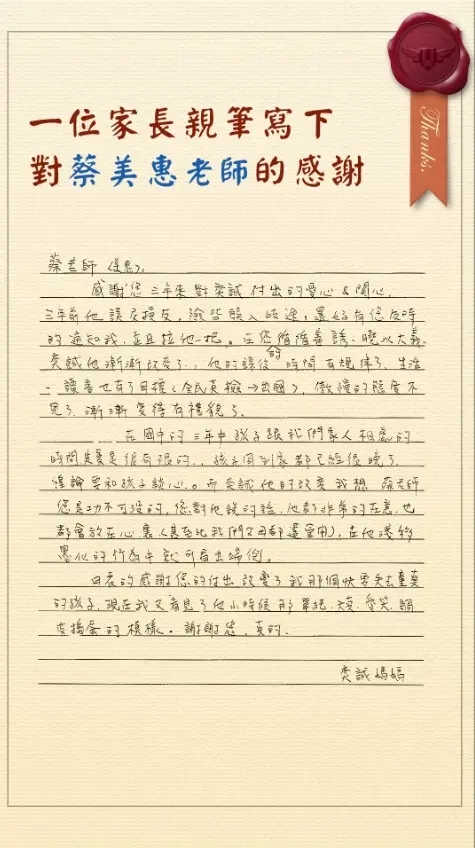 Thanks.
一位家長親筆寫下
對蔡美惠老師的感謝
蔡老師(美惠),
感謝您三年來對奕誠付出的愛心&關心,
三年前他誤交損友,險些誤入歧途,還好有您及時
的通知我,並且拉他一把。在您循循善誘、曉以大義,
奕誠他漸漸改變了,他的課後的時間有規律了,生活
、讀書也有了目標(全民英檢→出國),傲慢的態度不
見了,漸漸變得有禮貌了。
在國中的三年中孩子跟我們家人相處的
時間其實是很有限的,孩子回到家都已經很晚了,
遑論要和孩子談心。而奕誠他的改變我想蔡老師
您是功不可沒的,您對他說的話,他都非常的在意,也
都會放在心裏(甚至比我們父母都還管用),在他潛移
墨化的行為中就可看出端倪。
由衷的感謝您的付出改變了我那個快要失去童真
的孩子,現在我又看見了他小時候那單純、天真、愛笑、調
皮搗蛋的模樣。謝謝您,真的.
奕誠媽媽